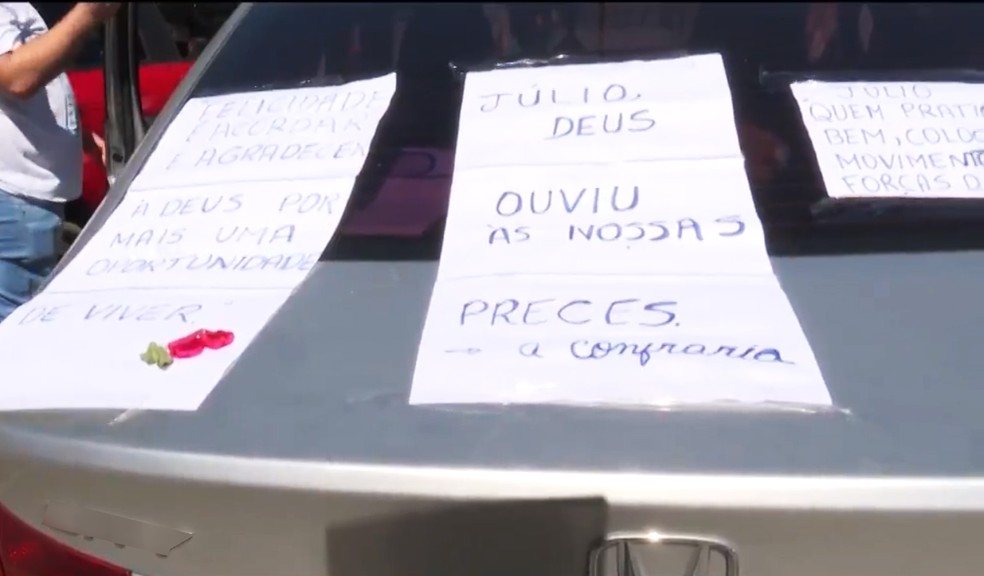 FELICIDADE
É ACORDAR
E AGRADECER
A DEUS POR
MAIS UMA
OPORTUNIDADE
DE VIVER."
JÚLIO,
DEUS
OUVIU
AS NOSSAS
PRECES.
→ a confraria
JULIO
QUEM PRATI
BEM, COLOC
MOVIMENTO
FORÇAS D